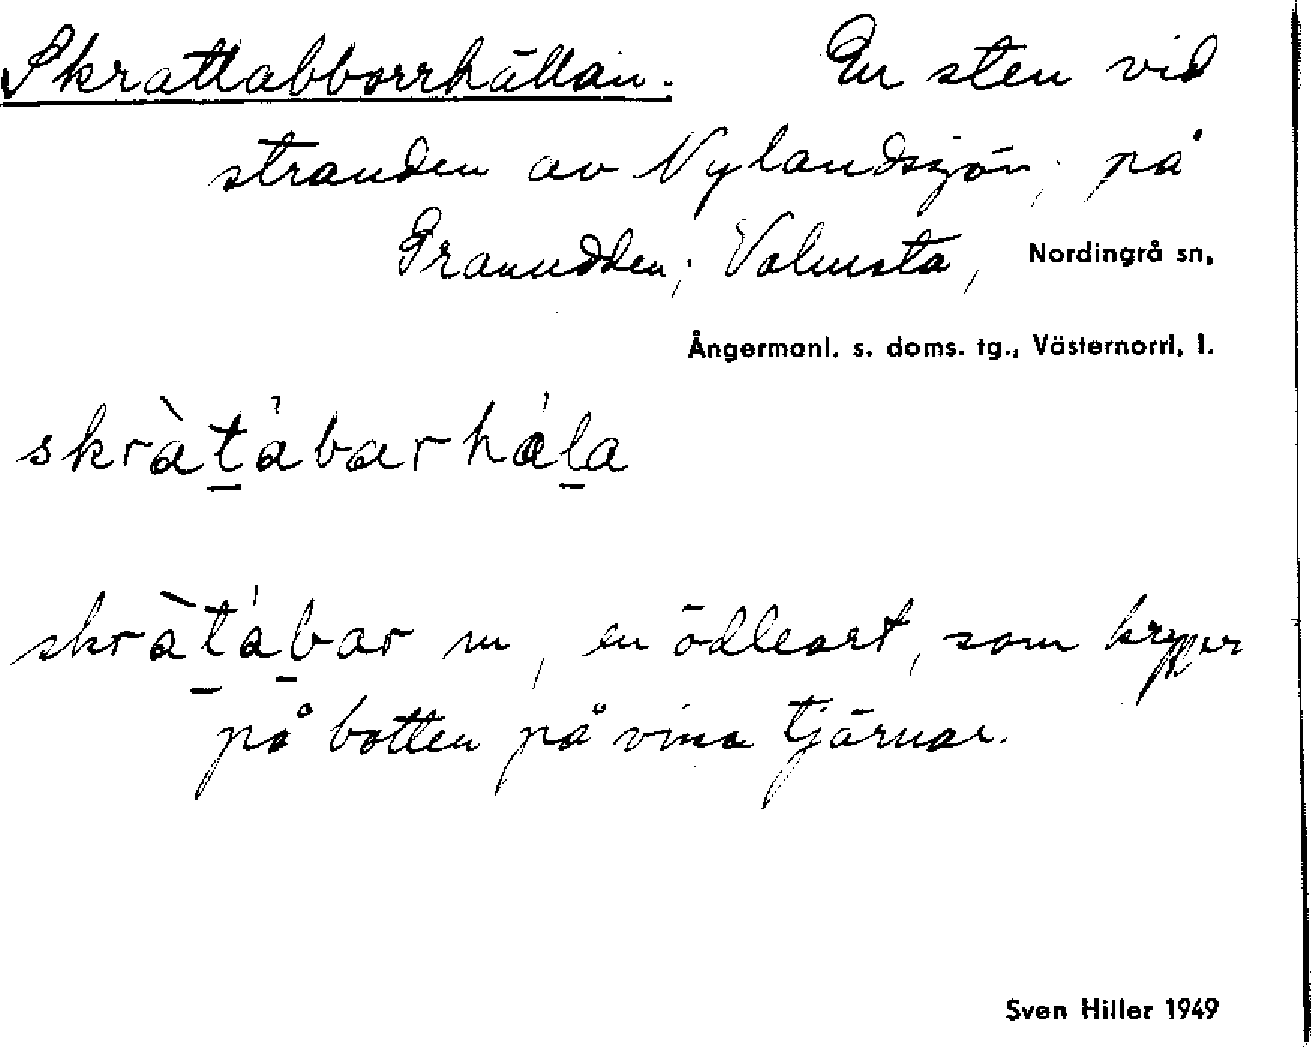 Skrattabborrhällan. En sten vid
stranden av Nylandssjön, på
Granudden, Valmsta, Nordingrå sn,
Ångermanl. s. doms. tg., Västernorrl. l.
skràt̲ábarhál̲a
skràt̲áb̲ar m, en ödleart, som kryper
på botten på vissa tjärnar.
Sven Hiller 1949